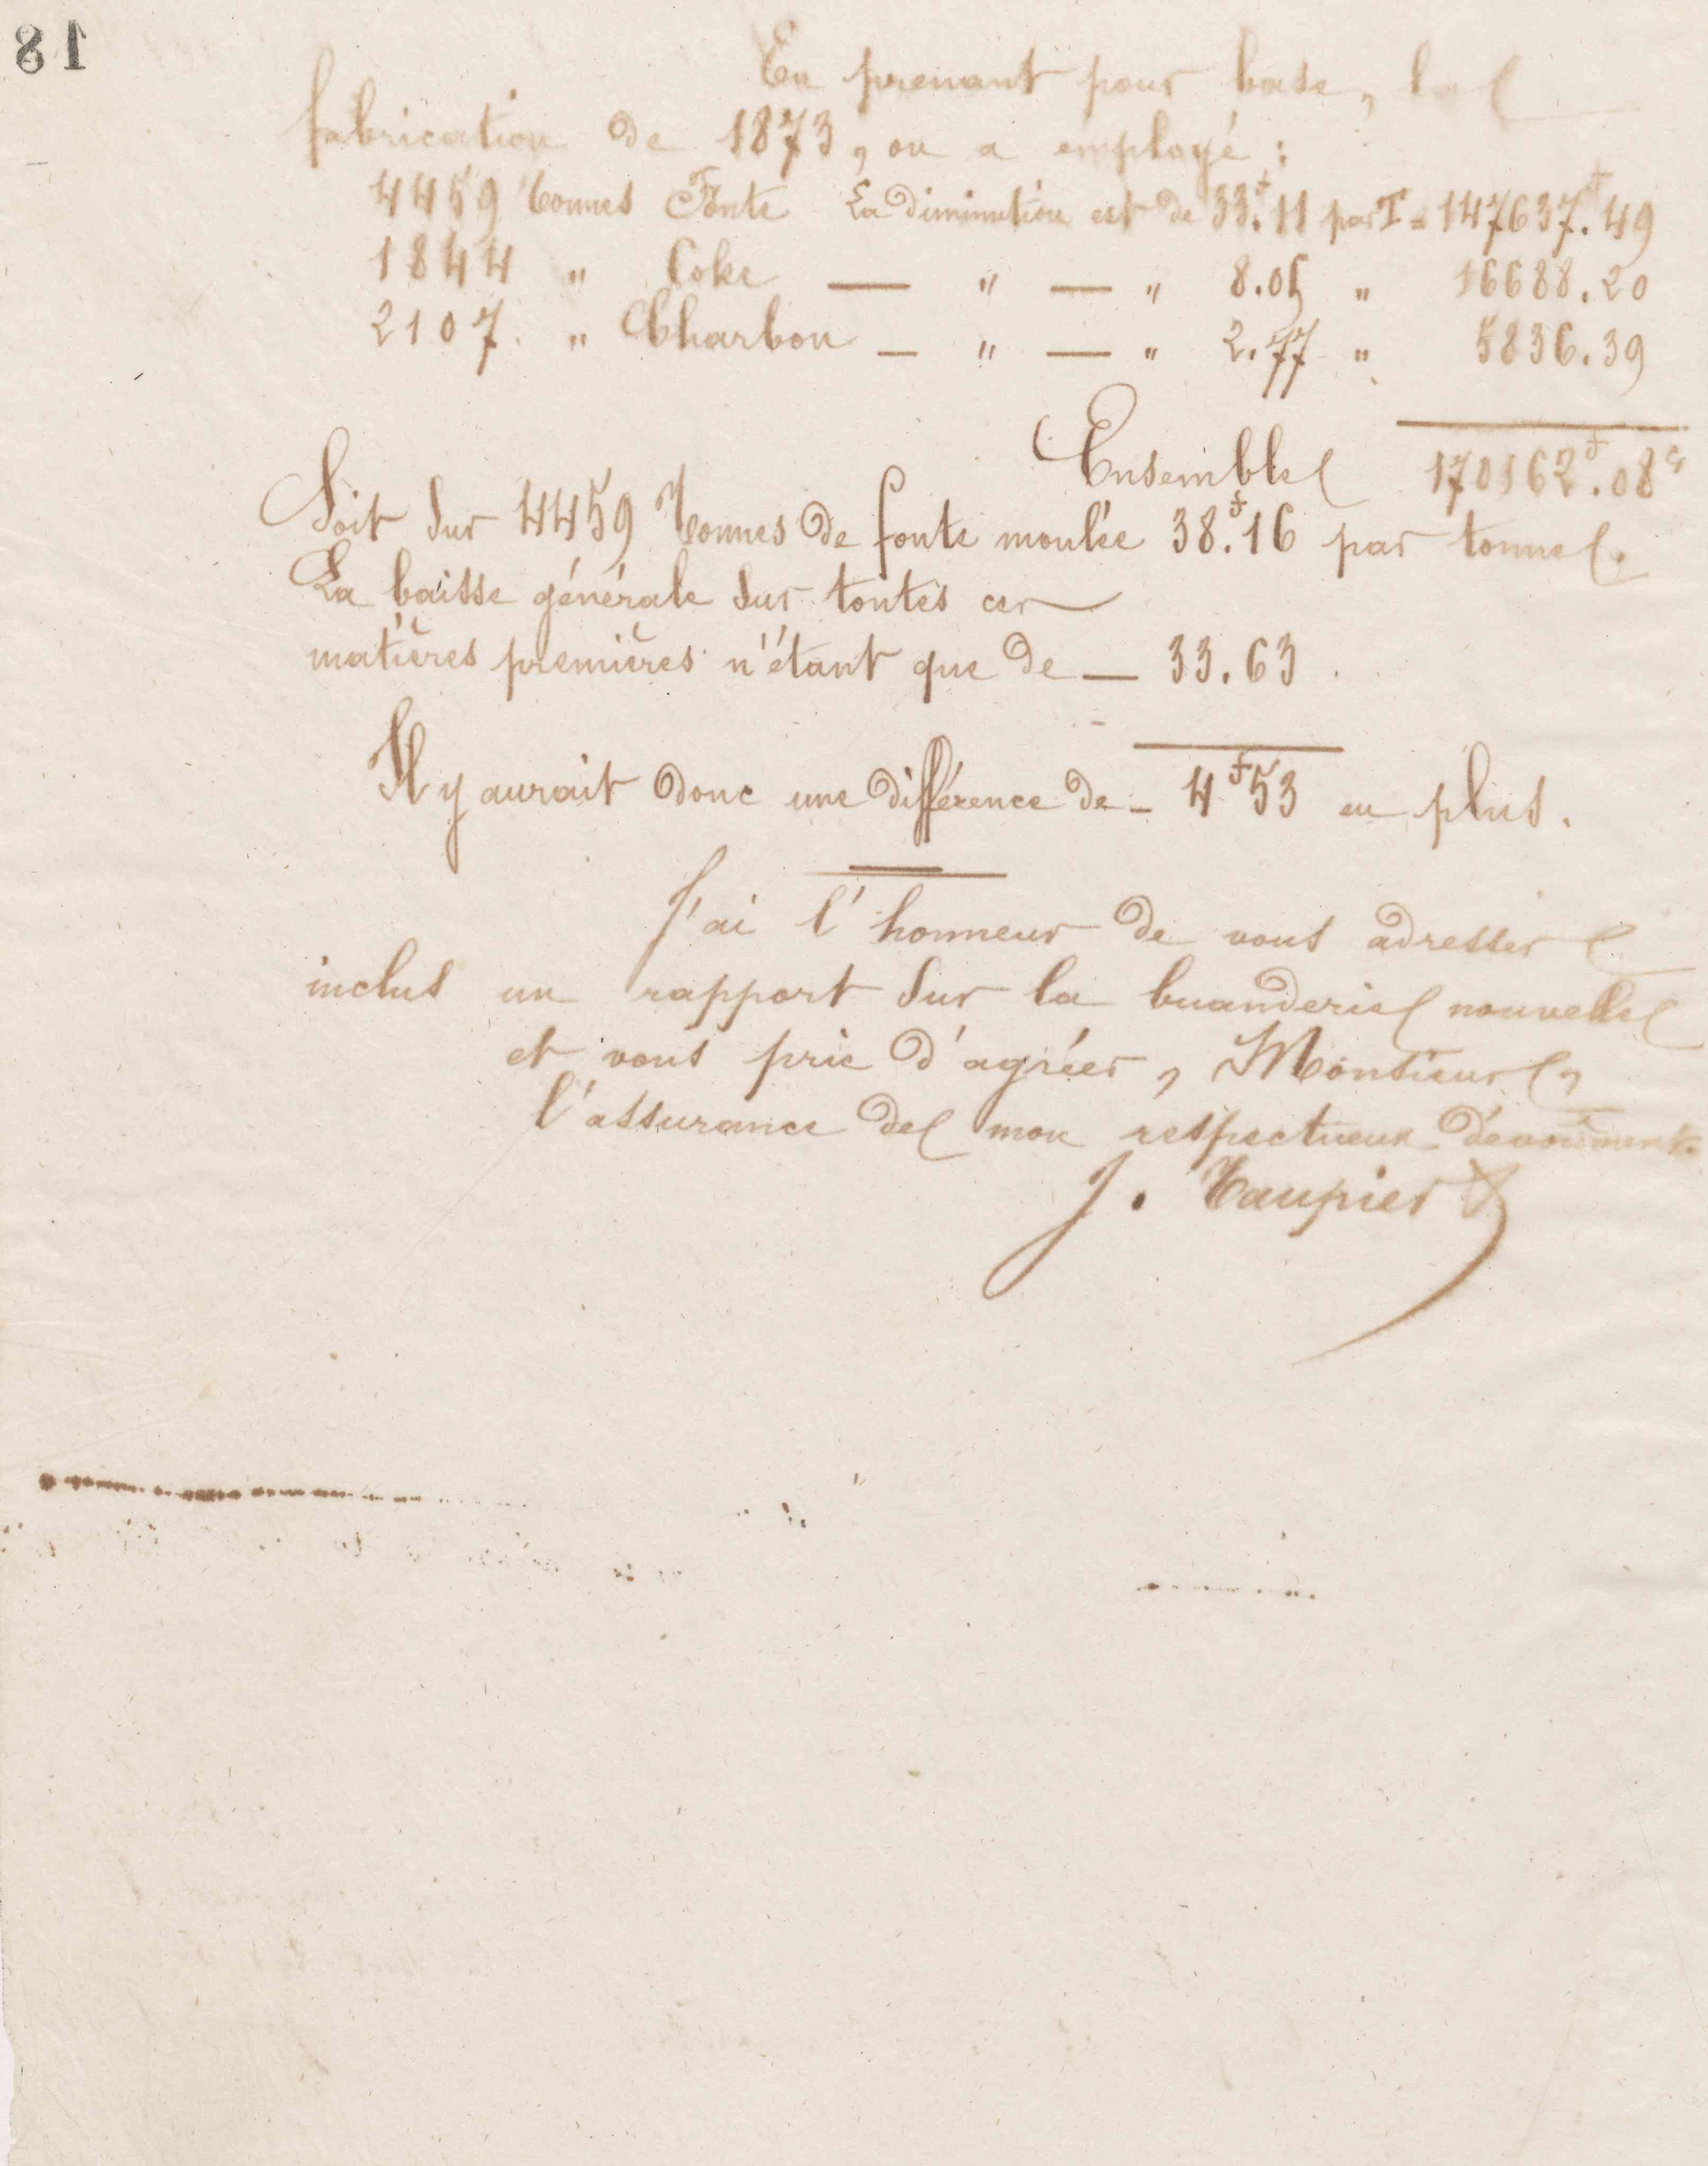 18
En prenant pour base, la
fabrication de 1873, on a employé :
4459 tonnes Fonte La diminution est de 33.f11 par T = 147637.f49
1844 " Coke — " — " 8.05 " 16688.20
2107. " Charbon — " — " 2.77 " 5836.39
Ensemble 170162f.08c
Soit sur 4459 Tonnes de fonte moulée 38.f16 par tonne.
La baisse générale sur toutes ces
matières premières n'étant que de — 33.63.
Il y aurait donc une différence de — 4f53 en plus.
J'ai l'honneur de vous adresser
inclus un rapport sur la buanderie nouvelle
et vous prie d'agréer, Monsieur,
l'assurance de mon respectueux dévoûment.
J. Taupier